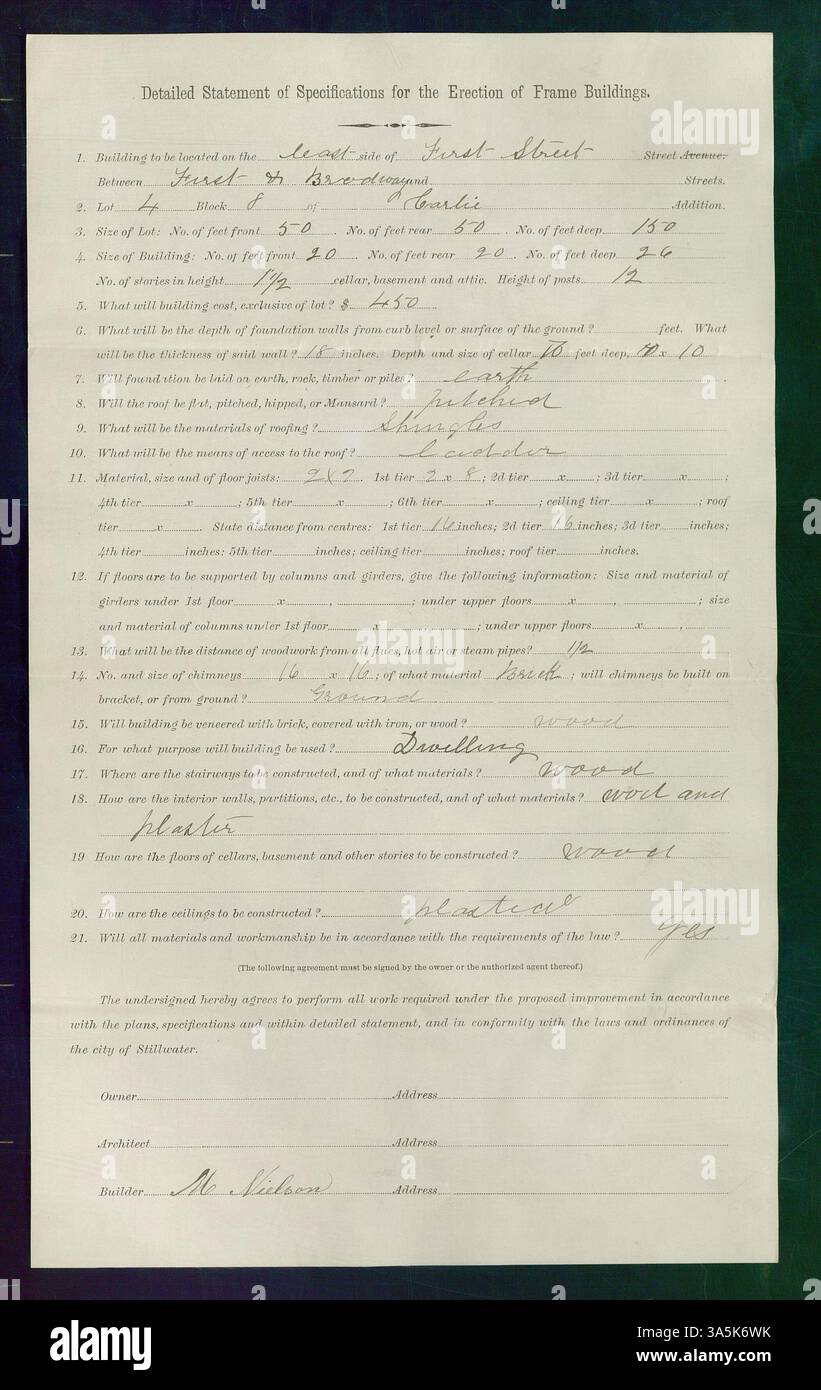 Detailed Statement of Specifications for the Erection of Frame Buildings.
1. Building to be located on the east side of First Street Street Avenue.
Between First & Brodway and Streets.
2. Lot 4 Block 8 of Carlie Addition.
3. Size of Lot: No. of feet front 50. No. of feet rear 50. No. of feet deep 150
4. Size of Building: No. of feet front 20. No. of feet rear 20. No. of feet deep 26
No. of stories in height 1 1/2 cellar, basement and attic. Height of posts 12
5. What will building cost, exclusive of lot? $ 450
6. What will be the depth of foundation walls from curb level or surface of the ground? feet. What
will be the thickness of said wall? 18 inches. Depth and size of cellar feet deep, x 10
7. Will foundation be laid on earth, rock, timber or piles? earth
8. Will the roof be flat, pitched, hipped, or Mansard? pitched
9. What will be the materials of roofing? Shingles
10. What will be the means of access to the roof? ladder
11. Material, size and of floor joists: 1st tier 2 x 8; 2d tier x; 3d tier x;
4th tier x; 5th tier x; 6th tier x; ceiling tier x; roof
tier x. State distance from centres: 1st tier 16 inches; 2d tier 16 inches; 3d tier inches;
4th tier inches: 5th tier inches; ceiling tier inches; roof tier inches.
12. If floors are to be supported by columns and girders, give the following information: Size and material of
girders under 1st floor x, ; under upper floors x, ; size
and material of columns under 1st floor x, ; under upper floors x,
13. What will be the distance of woodwork from all flues, hot air or steam pipes? 1/2
14. No. and size of chimneys 16 x 16; of what material Brick; will chimneys be built on
bracket, or from ground? Ground
15. Will building be veneered with brick, covered with iron, or wood? wood
16. For what purpose will building be used? Dwelling
17. Where are the stairways to be constructed, and of what materials? wood
18. How are the interior walls, partitions, etc., to be constructed, and of what materials? wod and
plaster
19 How are the floors of cellars, basement and other stories to be constructed? wood
20. How are the ceilings to be constructed?
21. Will all materials and workmanship be in accordance with the requirements of the law? yes
(The following agreement must be signed by the owner or the authorized agent thereof.)
The undersigned hereby agrees to perform all work required under the proposed improvement in accordance
with the plans, specifications and within detailed statement, and in conformity with the laws and ordinances of
the city of Stillwater.
Owner Address
Architect Address
Builder M Nielson Address
alamy
Image ID: 3A5K6WK
www.alamy.com